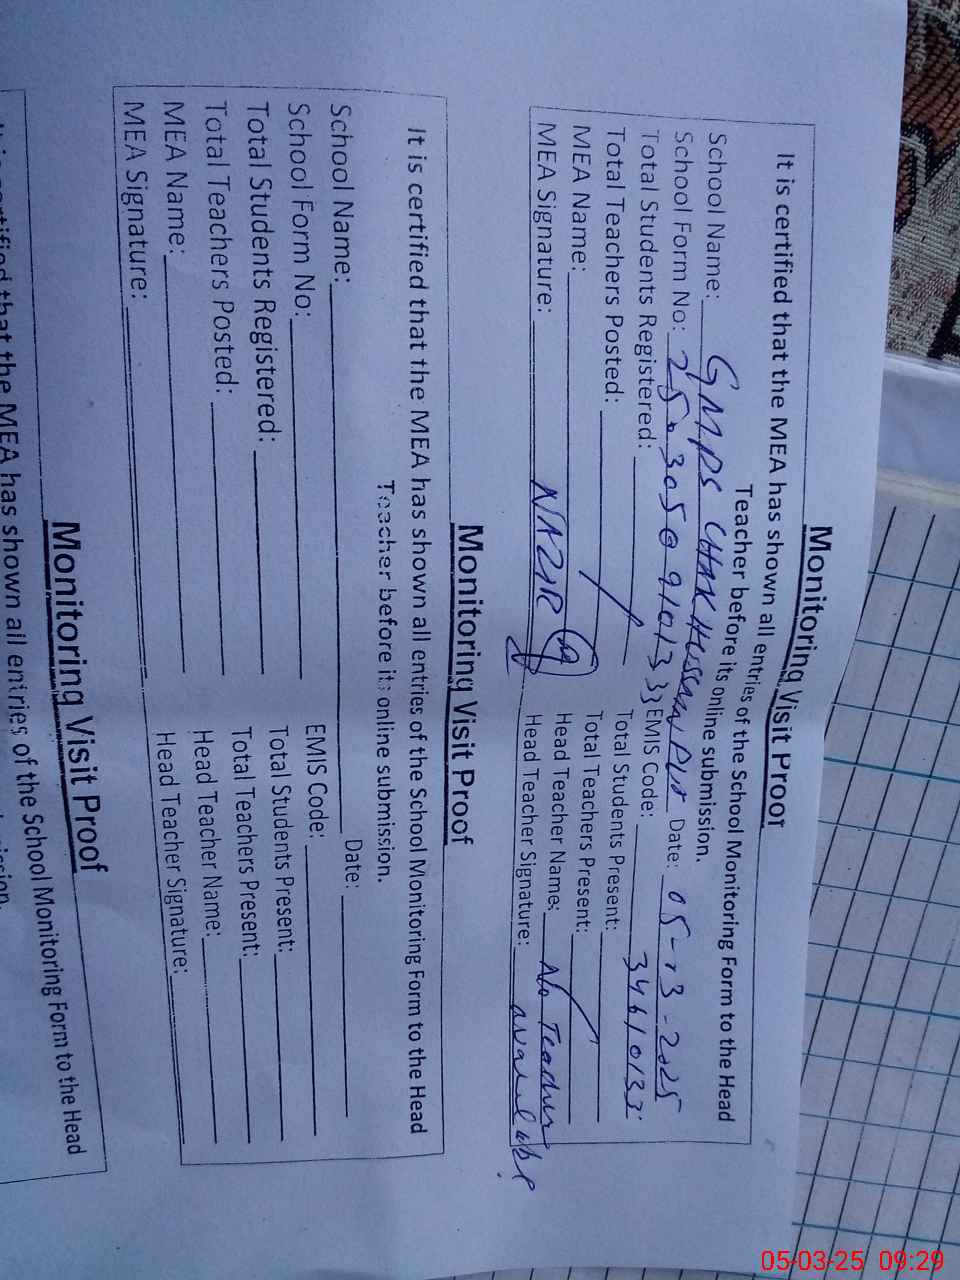 Monitoring Visit Proof
It is certified that the MEA has shown all entries of the School Monitoring Form to the Head
Teacher before its online submission.
School Name: GMPS CHAK Hussain Pur Date: 05-03-2025
School Form No: EMIS Code: 3461013
Total Students Registered: Total Students Present:
Total Teachers Posted: Total Teachers Present:
MEA Name: Head Teacher Name: No Teacher
MEA Signature: NAZIR Head Teacher Signature: available
Monitoring Visit Proof
It is certified that the MEA has shown all entries of the School Monitoring Form to the Head
Teacher before its online submission.
School Name: Date:
School Form No: EMIS Code:
Total Students Registered: Total Students Present:
Total Teachers Posted: Total Teachers Present:
MEA Name: Head Teacher Name:
MEA Signature: Head Teacher Signature:
Monitoring Visit Proof
that the MEA has shown all entries of the School Monitoring Form to the Head
05-03-25 09:29